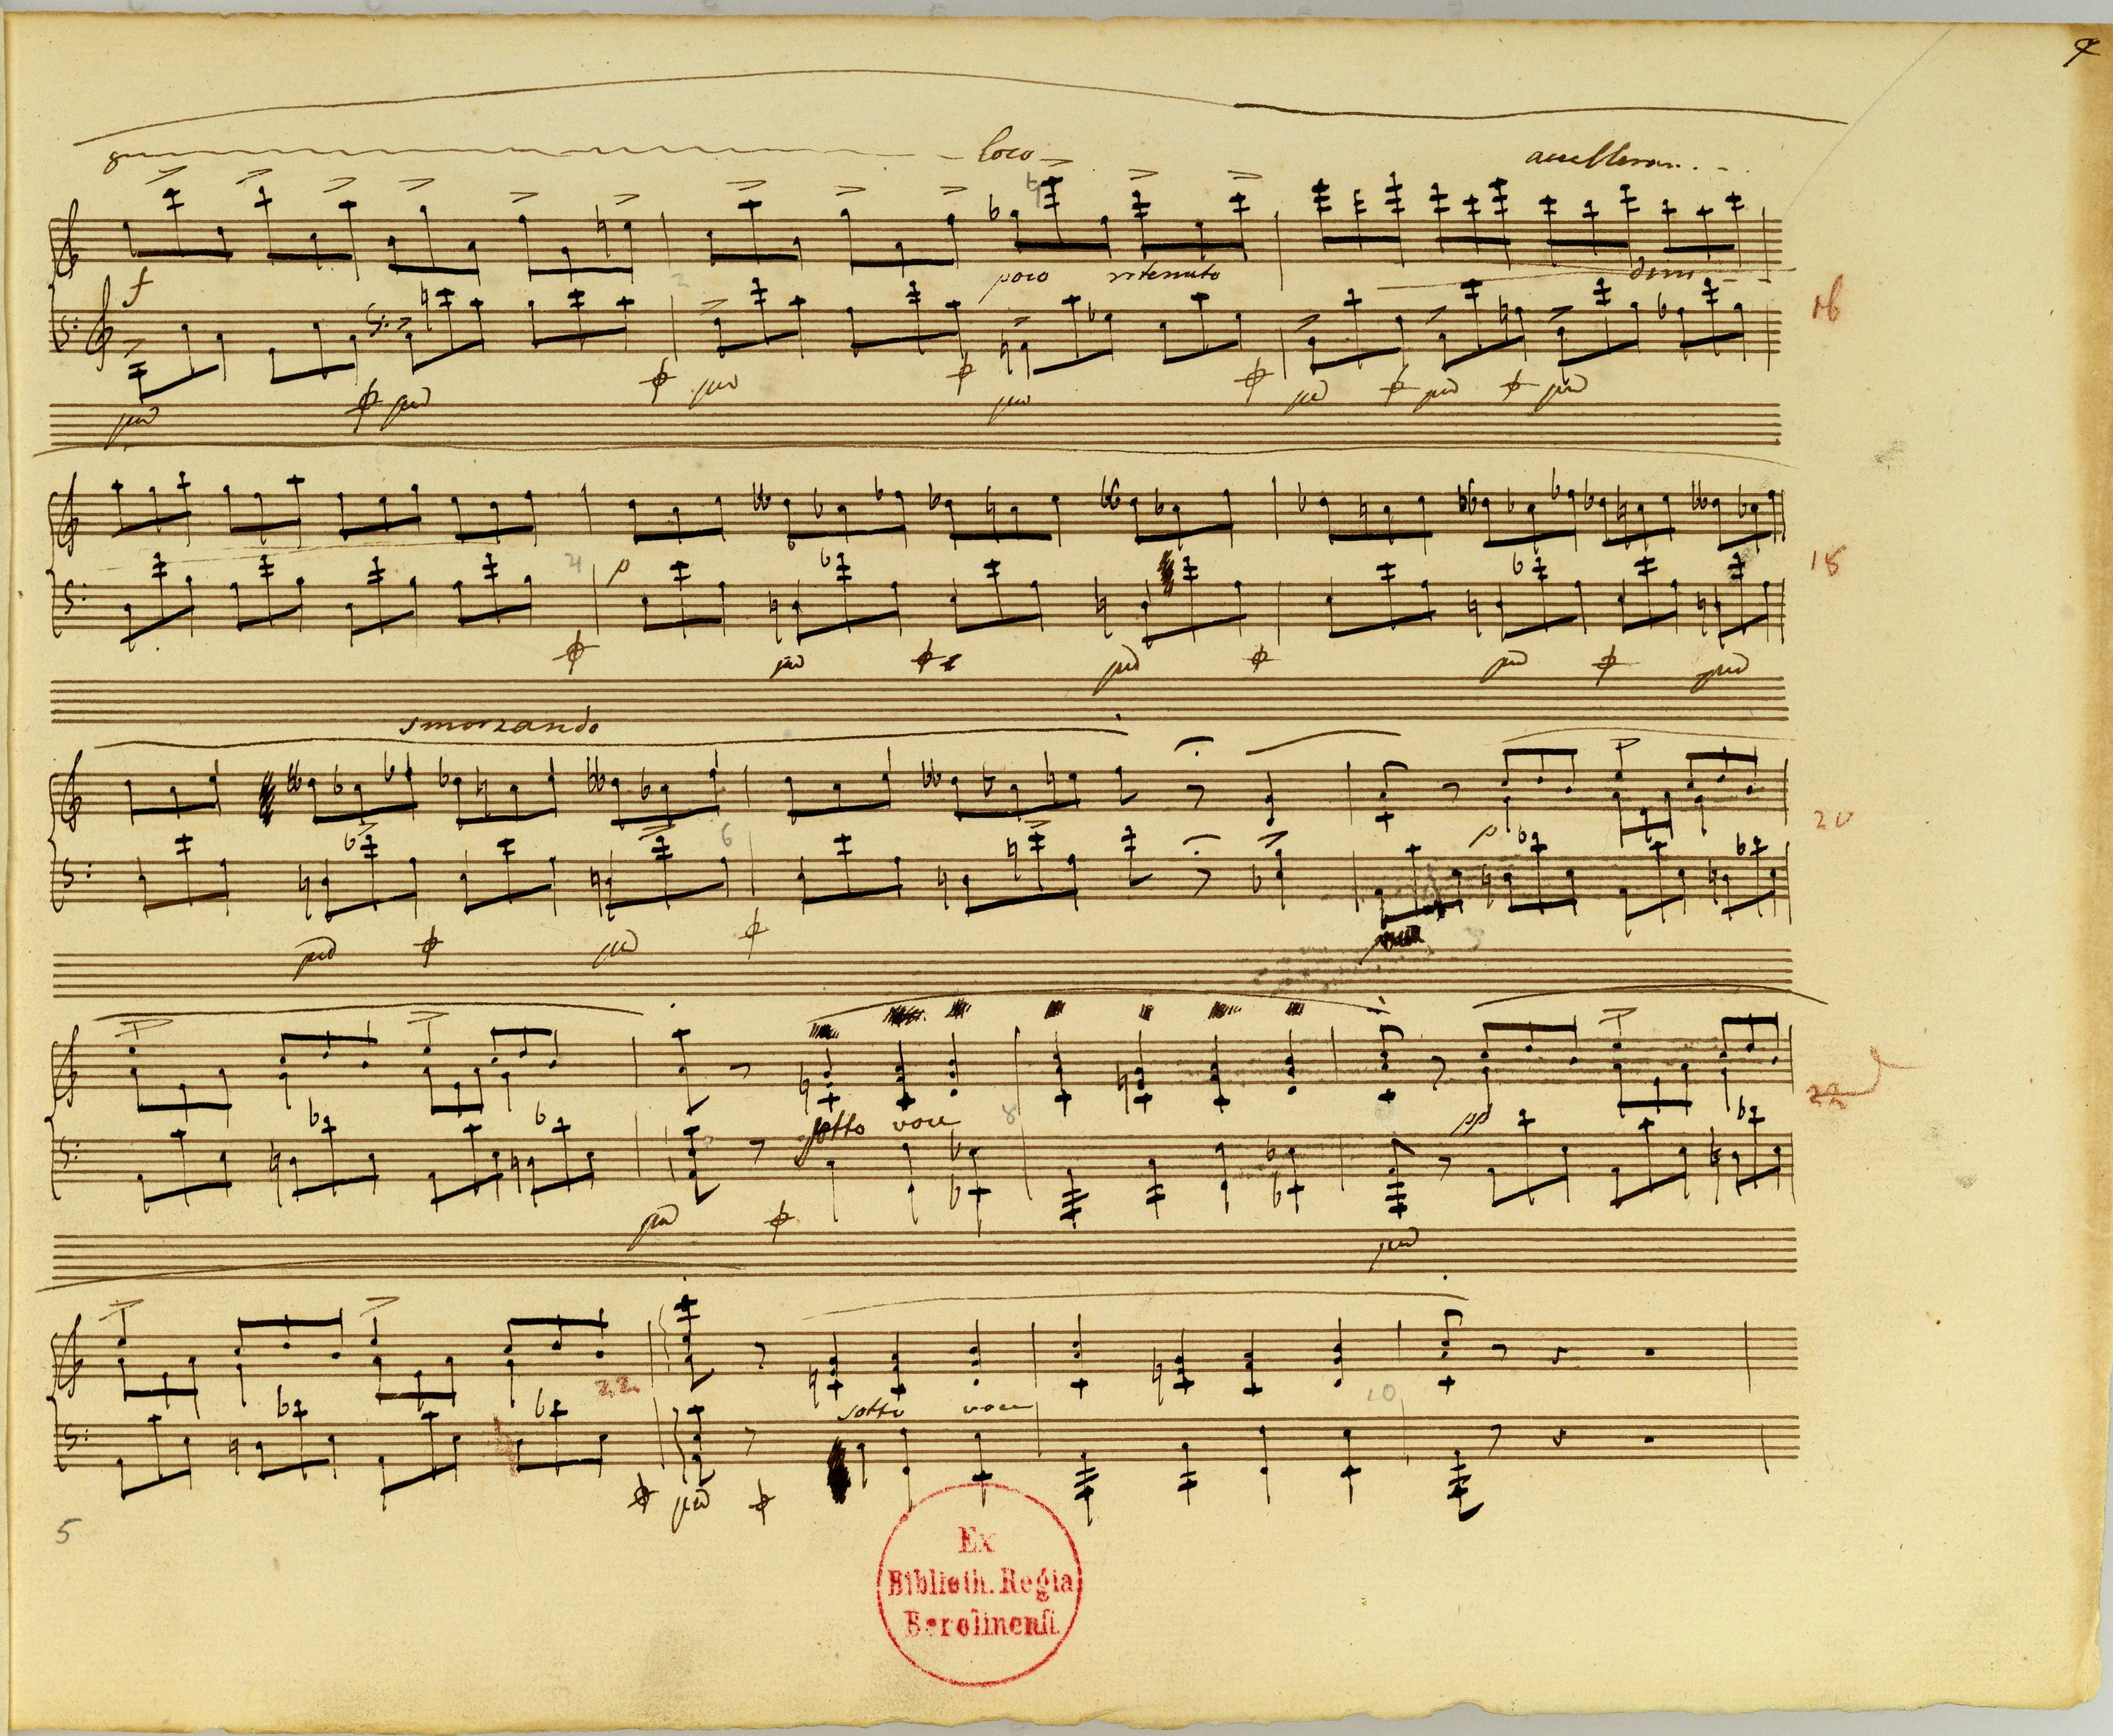 4
8 loco accelleran..
f poco ritenuto dim
16
2
ped ped ped ped ped ped ped
4 p
18
ped ped ped ped
smorzando
6 p
20
ped ped
sotto voce 8 pp
22
ped ped
22
sotto voce 10
ped
5
Ex
Biblioth. Regia
Berolinenſi.